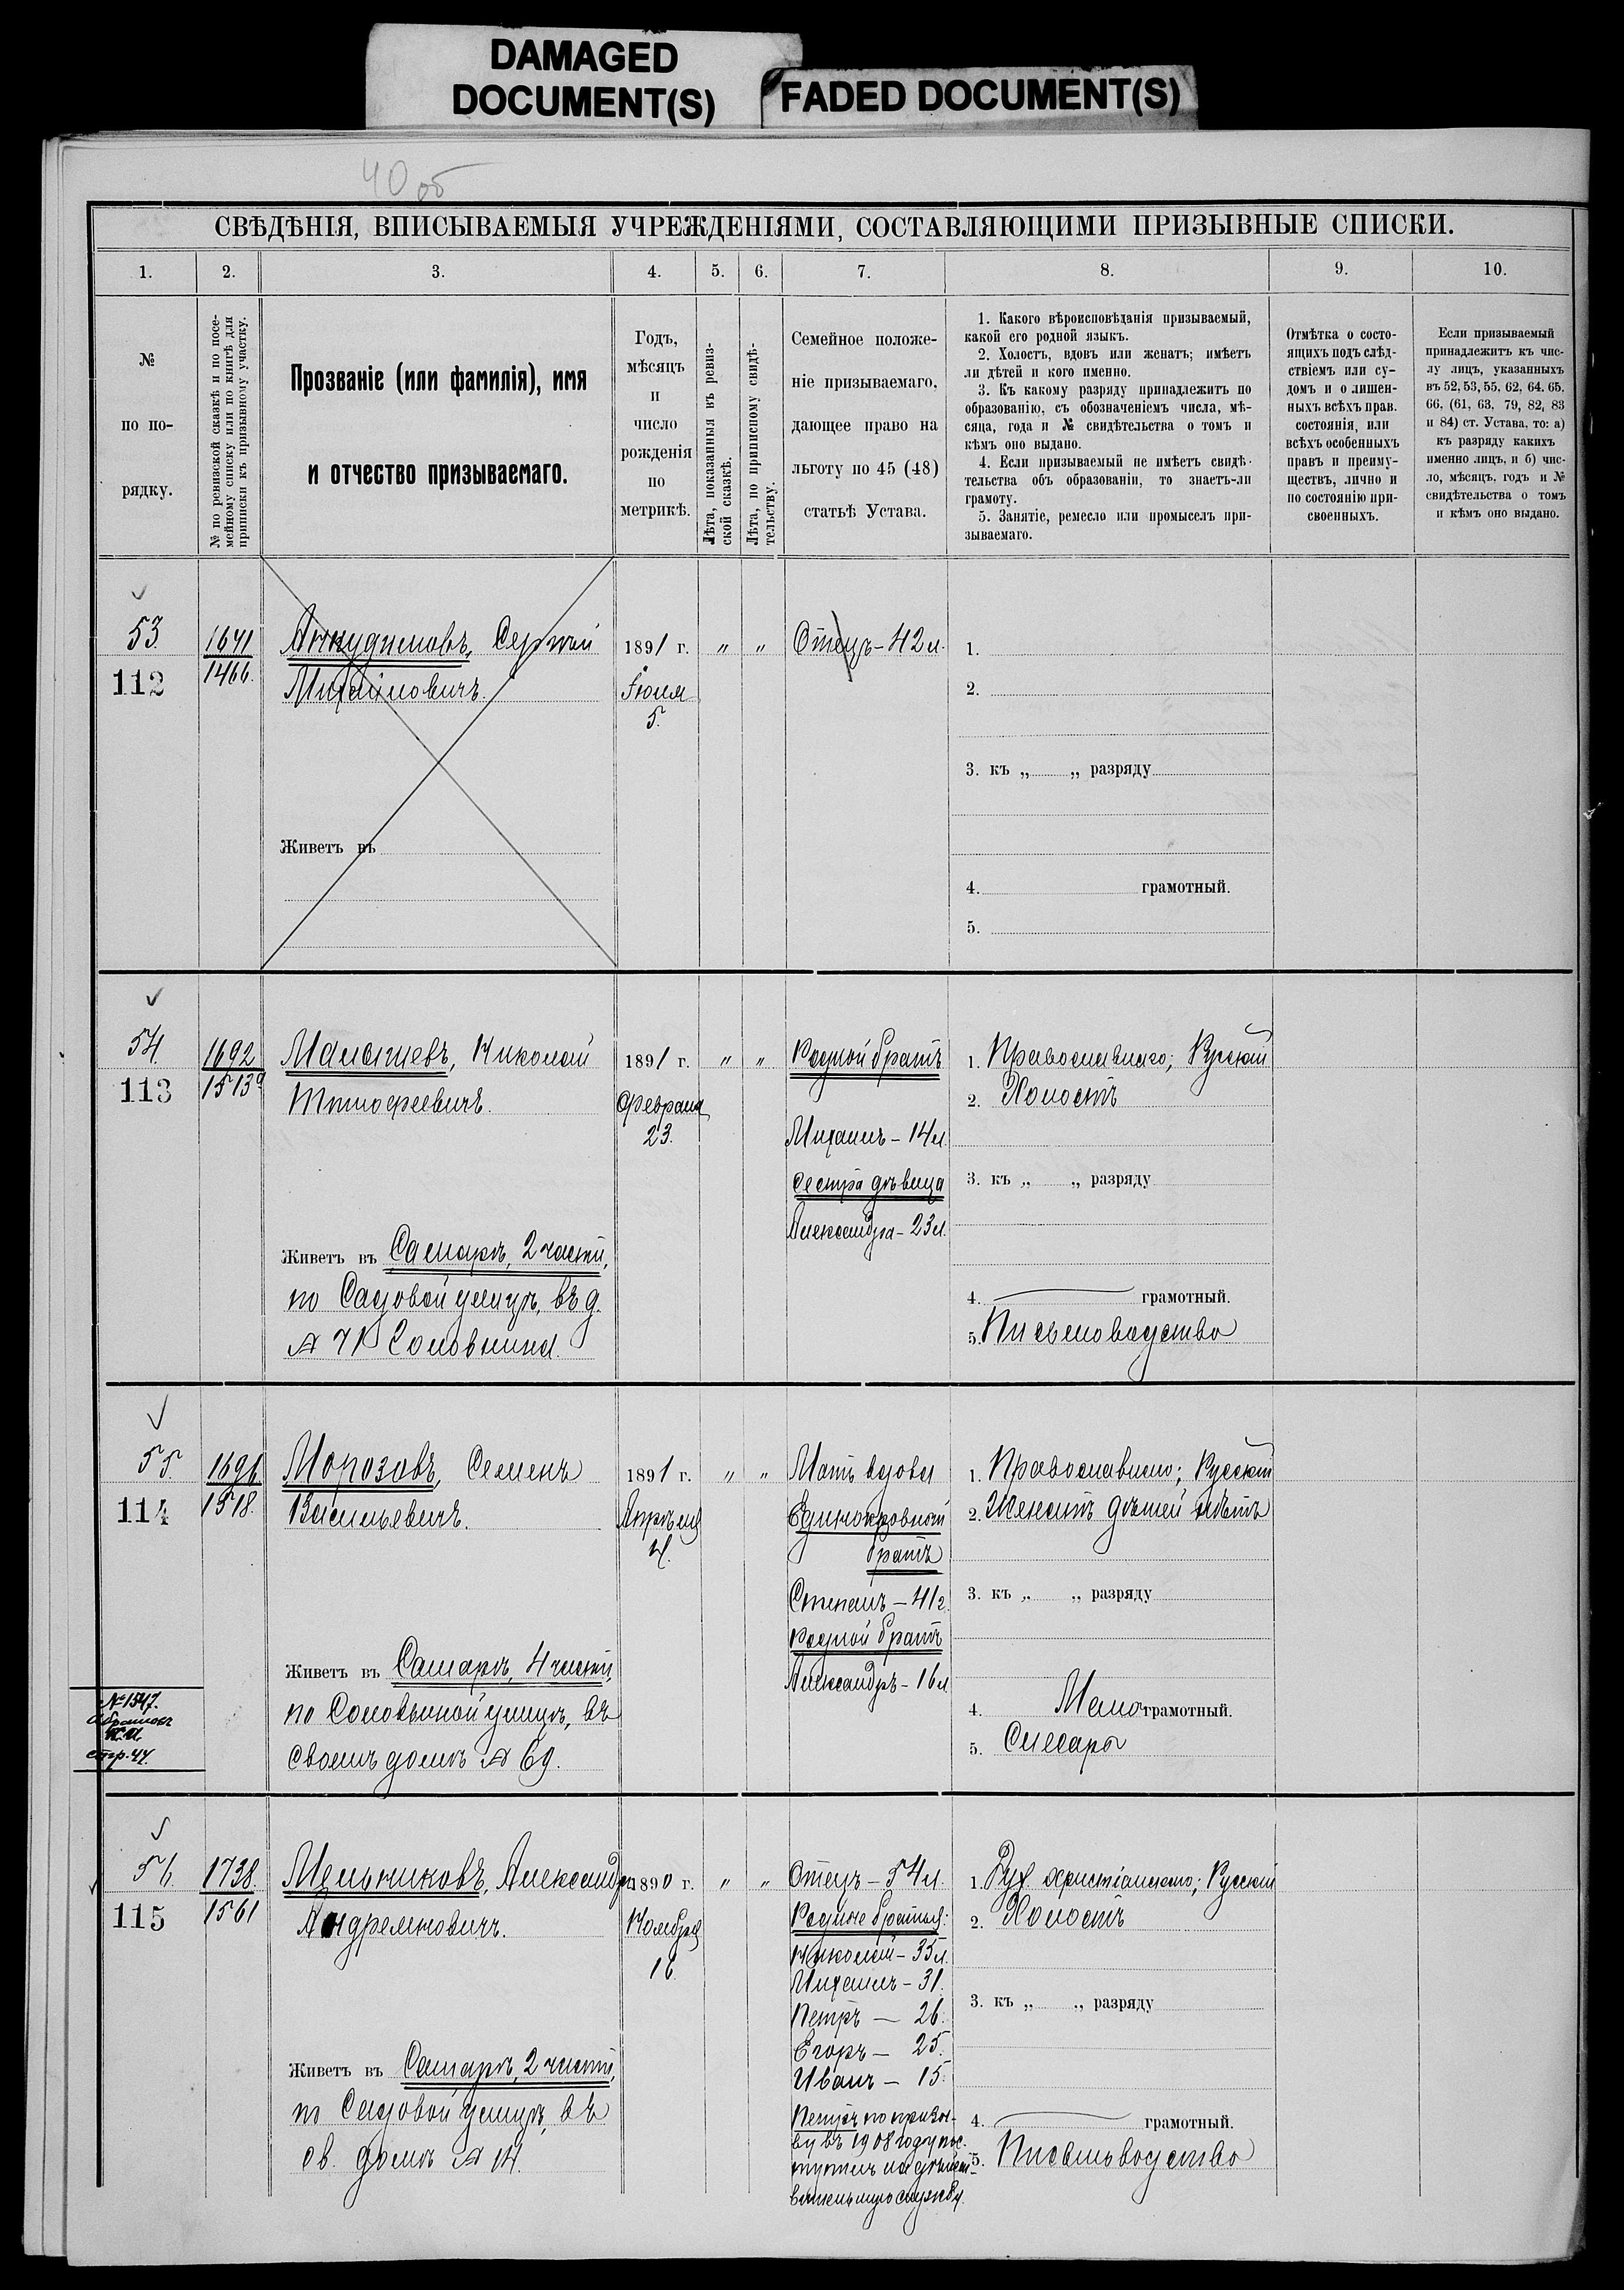 DAMAGED
DOCUMENT(S)
FADED DOCUMENT(S)
40 об
СВѢДѢНІЯ, ВПИСЫВАЕМЫЯ УЧРЕЖДЕНІЯМИ, СОСТАВЛЯЮЩИМИ ПРИЗЫВНЫЕ СПИСКИ.
1. 2. 3. 4. 5. 6. 7. 8. 9. 10.
№
по по-
рядку.
№ по ревизской сказкѣ и по посе-
мейному списку или по книгѣ для
приписки къ призывному участку.
Прозваніе (или фамилія), имя
и отчество призываемаго.
Годъ,
мѣсяцъ
и
число
рожденія
по
метрикѣ.
Лѣта, показанныя въ ревиз-
ской сказкѣ.
Лѣта, по приписному свидѣ-
тельству.
Семейное положе-
ніе призываемаго,
дающее право на
льготу по 45 (48)
статьѣ Устава.
1. Какого вѣроисповѣданія призываемый,
какой его родной языкъ.
2. Холостъ, вдовъ или женатъ; имѣетъ
ли дѣтей и кого именно.
3. Къ какому разряду принадлежитъ по
образованію, съ обозначеніемъ числа, мѣ-
сяца, года и № свидѣтельства о томъ и
кѣмъ оно выдано.
4. Если призываемый не имѣетъ свидѣ-
тельства объ образованіи, то знаетъ-ли
грамоту.
5. Занятіе, ремесло или промыселъ при-
зываемаго.
Отмѣтка о состо-
ящихъ подъ слѣд-
ствіемъ или су-
домъ и о лишен-
ныхъ всѣхъ прав.
состоянія, или
всѣхъ особенныхъ
правъ и преиму-
ществъ, лично и
по состоянію при-
своенныхъ.
Если призываемый
принадлежитъ къ чис-
лу лицъ, указанныхъ
въ 52, 53, 55, 62, 64. 65.
66, (61, 63, 79, 82, 83
и 84) ст. Устава, то: а)
къ разряду какихъ
именно лицъ, и б) чис-
ло, мѣсяцъ, годъ и №
свидѣтельства о томъ
и кѣмъ оно выдано.
53.
112
1641
1466.
Анкудиновъ, Сергѣй
Михайловичъ.
Живетъ въ
1891 г.
Іюля
5.
" "
Отецъ – 42 л.
1.
2.
3. къ „ „ разряду
4. грамотный.
5.
54.
113
1692
1513а
Малышевъ, Николай
Тимофеевичъ.
Живетъ въ Самарѣ, 2 части,
по Садовой улицѣ, въ д.
№ 71 Соловкина.
1891 г.
Февраля
23.
" "
Родной братъ
Михаилъ – 14 л.
сестра дѣвица
Александра – 23 л.
1. Православнаго; Русскій
2. Холостъ
3. къ „ „ разряду
4. грамотный.
5. Письмоводство
55.
114
1696
1518.
Морозовъ, Семенъ
Васильевичъ.
Живетъ въ Самарѣ, 4 части,
по Соловьиной улицѣ, въ
своемъ домѣ № 69.
1891 г.
Апрѣля
4.
" "
Мать вдова
Единокровный
братъ
Степанъ – 41 г.
Родной братъ
Александръ – 16 л.
1. Православнаго; Русскій
2. Женатъ дѣтей нѣтъ
3. къ „ „ разряду
4. Мало грамотный.
5. Слесарь
№ 1547.
стр. 44.
56.
115
1738.
1561
Мельниковъ, Александръ
Андреяновичъ.
Живетъ въ Самарѣ, 2 части,
по Садовой улицѣ, въ
св. домѣ № 14.
1890 г.
Ноября
16.
" "
Отецъ – 54 л.
Родные братья:
Николай – 35 л.
Михаилъ – 31.
Петръ – 26.
Егоръ – 25.
Иванъ – 15.
Петръ по призы-
ву въ 1908 году пос-
тупилъ на дѣйст-
вительную службу.
1. Дух. христіанскаго; Русскій
2. Холостъ
3. къ „ „ разряду
4. грамотный.
5. Письмоводство